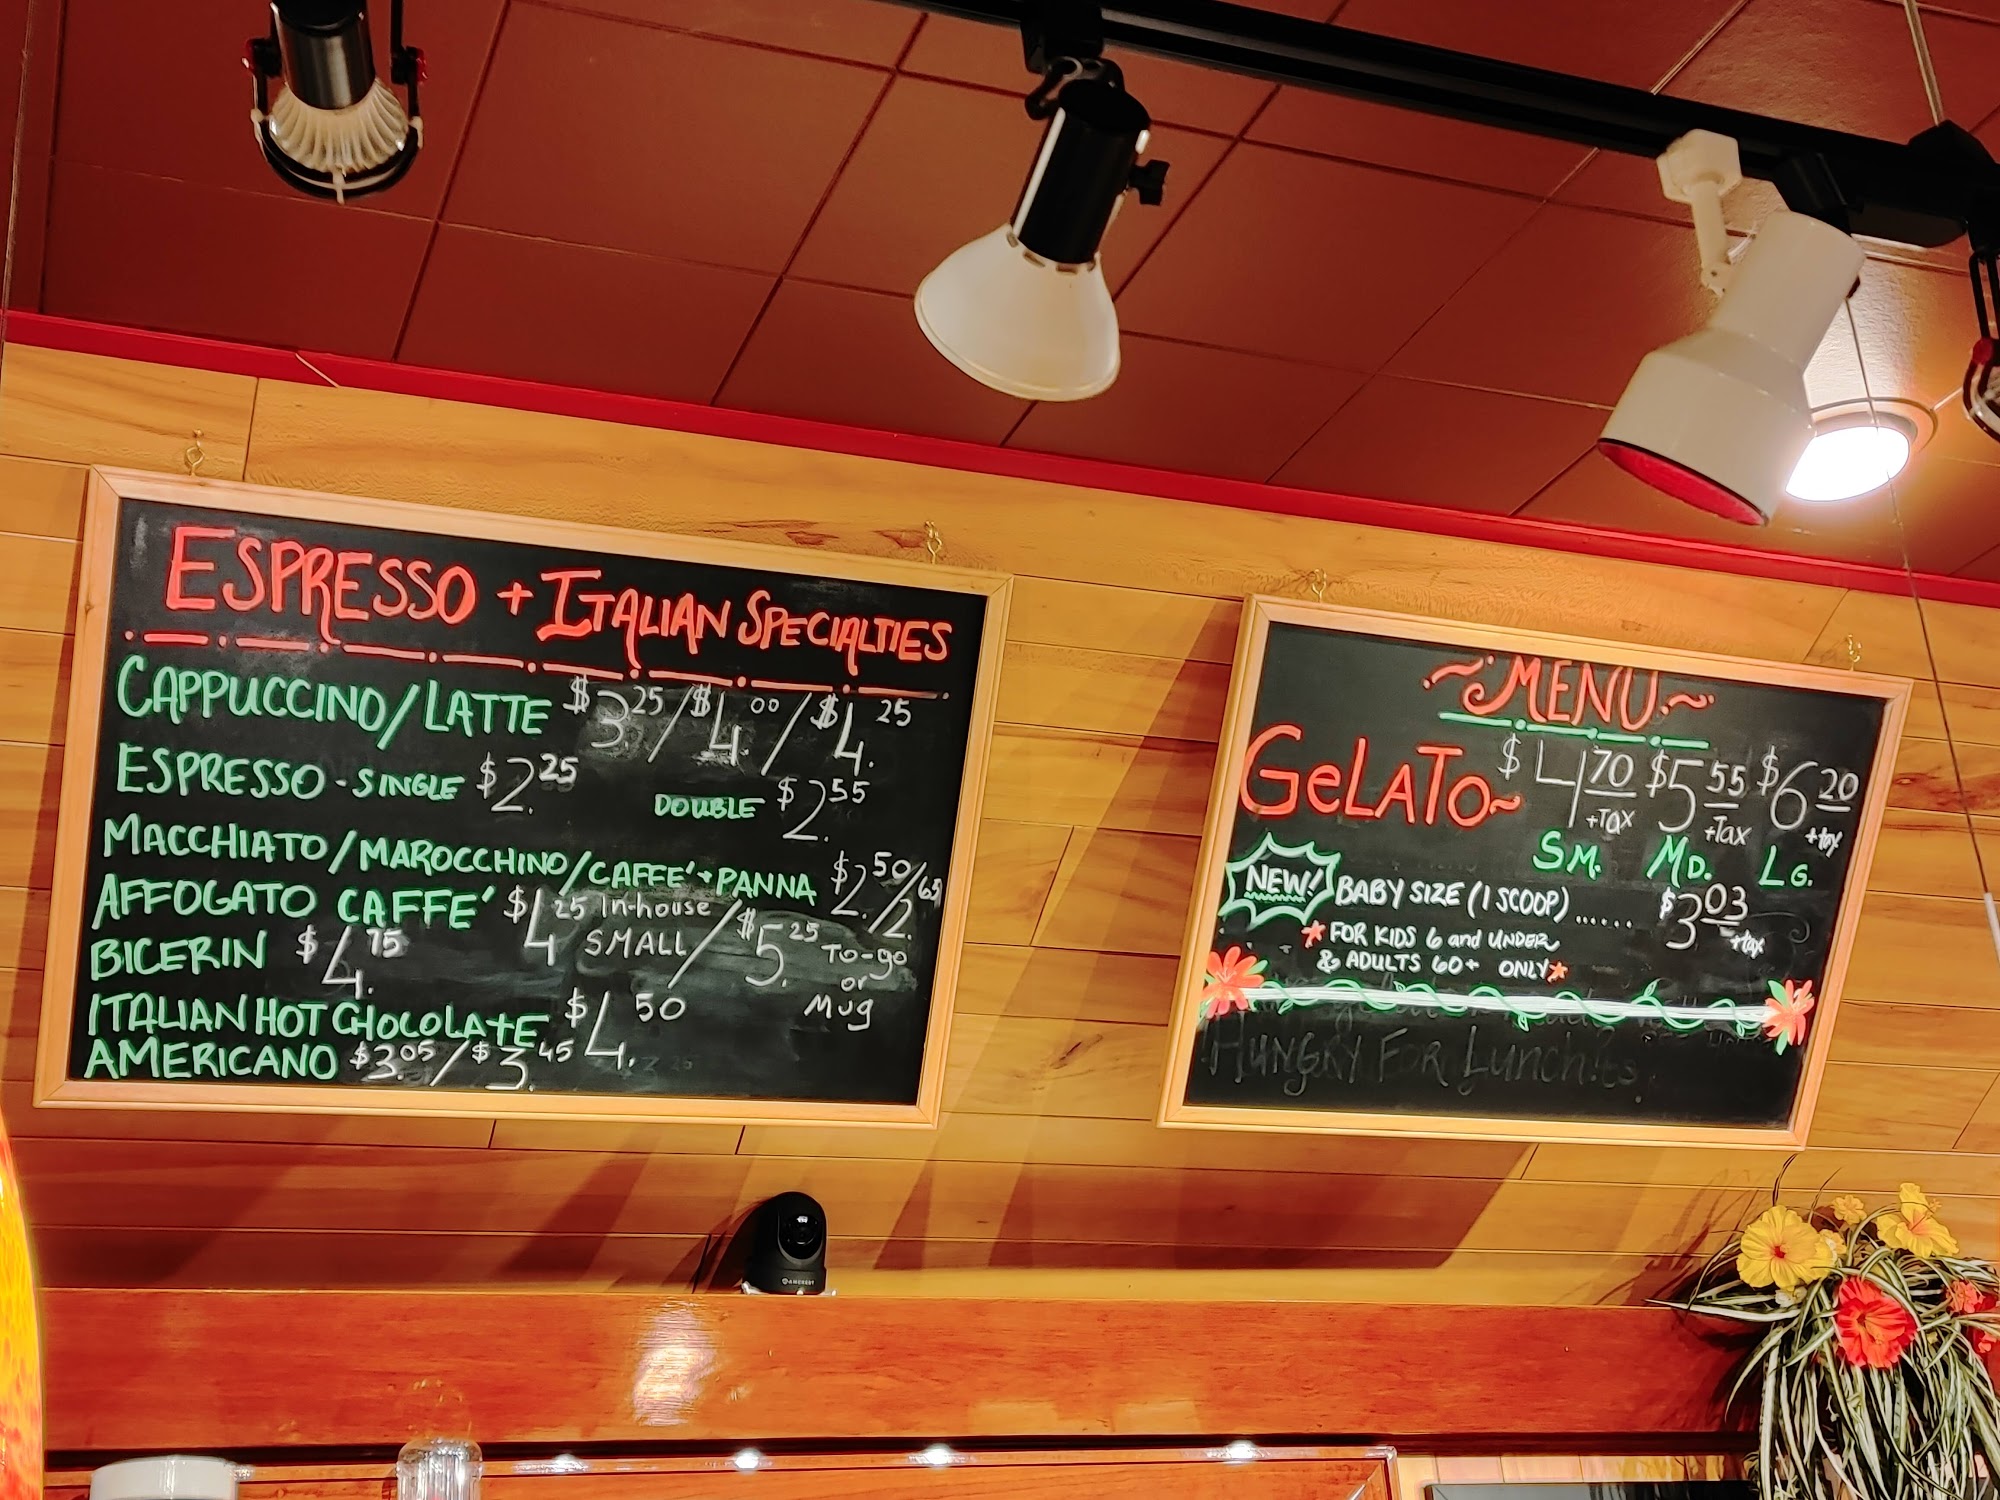 ESPRESSO + ITALIAN SPECIALTIES
CAPPUCCINO/LATTE $3.25/$4.00/$4.25
ESPRESSO - SINGLE $2.25 DOUBLE $2.55
MACCHIATO/MAROCCHINO/CAFFE'+PANNA $2.50/2.65
AFFOGATO CAFFE' $4.25 In-house SMALL / $5.25 To-go or Mug
BICERIN $4.75
ITALIAN HOT CHOCOLATE $4.50
AMERICANO $3.05/$3.45
~MENU~
GeLATO~ $4.70 +Tax $5.55 +Tax $6.20 +tax
SM. MD. LG.
NEW! BABY SIZE (1 SCOOP)...... $3.03 +tax
*FOR KIDS 6 and UNDER
& ADULTS 60+ ONLY*
HUNGRY FOR Lunch?
AMCREST